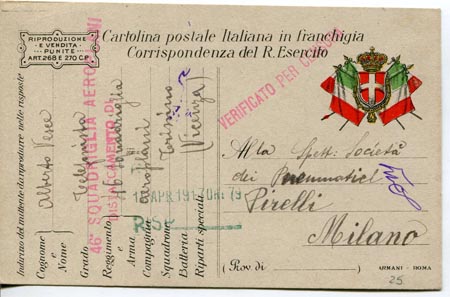 RIPRODUZIONE
E VENDITA
PUNITE
ART. 268 E 270 C.P.
Cartolina postale Italiana in franchigia
Corrispondenza del R. Esercito
VERIFICATO PER CENSURA
46ª SQUADRIGLIA AEROPLANI
DISTACCAMENTO DI
Indirizzo del mittente da riportare nelle risposte
Cognome e Nome Alberto
Grado
Reggimento e Arma 46 Squadriglia
Compagnia aeroplani
Squadrone
Batteria
Riparti speciali (Vicenza)
APR. 1917
Alla Spett. Società
dei Pneumatici
Pirelli
Milano
(Rov. di )
ARMANI - ROMA
25